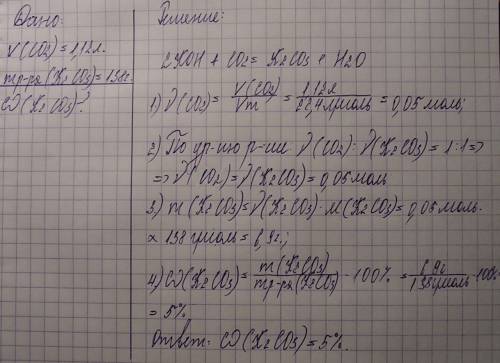 Дано:
V(CO2)=1,12л.
mр-ра(K2CO3)=138г.
ω(K2CO3)?
Решение:
2KOH + CO2 = K2CO3 + H2O
1) ν(CO2) = V(CO2)/Vm = 1,12л/22,4л/моль = 0,05 моль;
2) По ур-ию р-ии ν(CO2):ν(K2CO3)=1:1=>
=> ν(CO2)=ν(K2CO3)=0,05 моль
3) m(K2CO3)=ν(K2CO3)·M(K2CO3)=0,05 моль·
× 138 г/моль = 6,9г.;
4) ω(K2CO3)= m(K2CO3)/mр-ра(K2CO3) ·100% = 6,9г/138г/моль ·100%
= 5%
Ответ: ω(K2CO3)=5%.